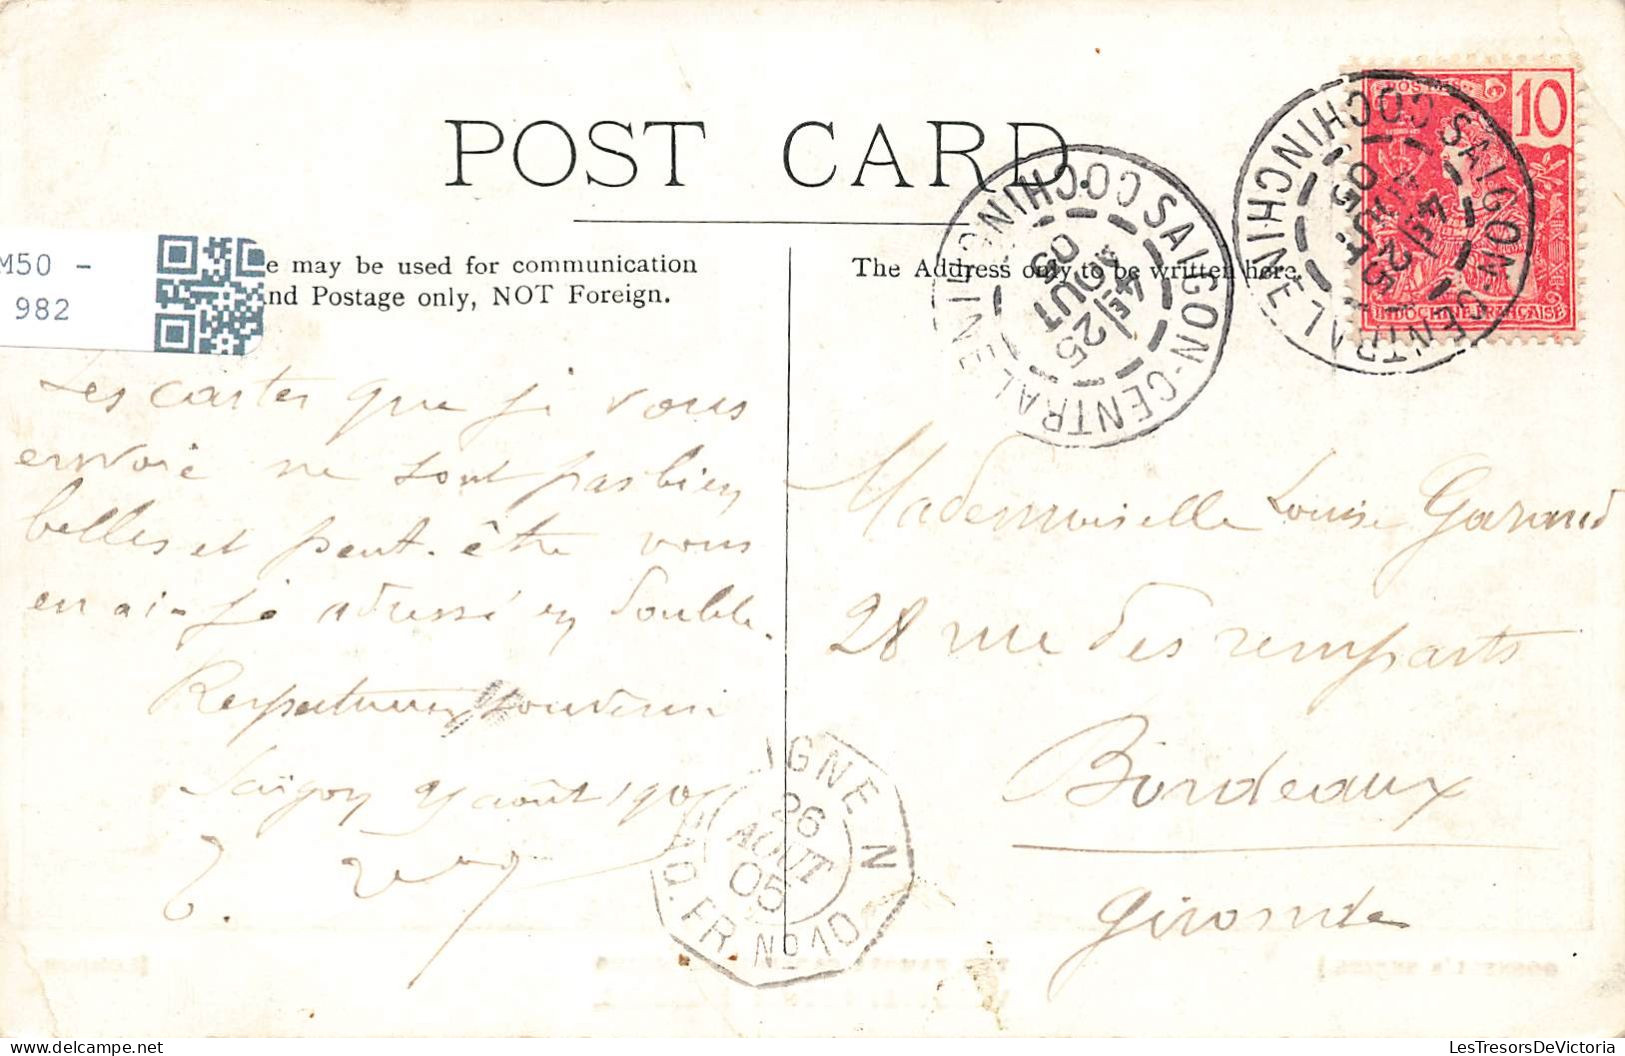 POST CARD.
M50 -
982
e may be used for communication
nd Postage only, NOT Foreign.
The Address only to be written here.
SAIGON-CENTRAL
COCHINCHINE
4E/25
AOUT
05
POSTES
10
INDOCHINE FRANÇAISE
SAIGON-CENTRAL
COCHINCHINE
25
AOUT
05
Les cartes que je vous
envoie ne sont pas bien
belles et peut-être vous
en ai-je adressé en double.
Respectueux souvenir
Saïgon août 190
Mademoiselle Louise Garaud
28 rue des remparts
Bordeaux
Gironde
LIGNE N
PAQ. FR. No 10
26
AOUT
05
LesTresorsDeVictoria